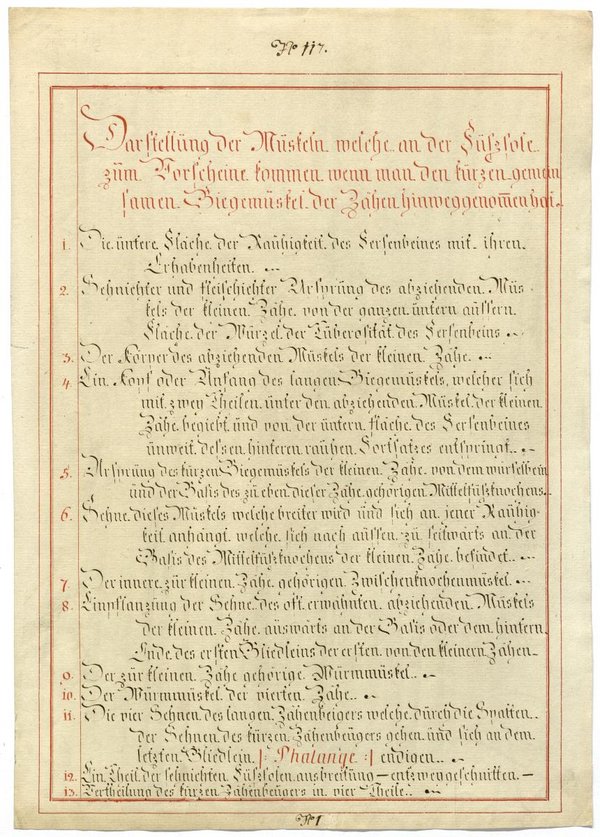 No 117.
Darstellung der Muskeln welche an der Fußsole
zum Vorscheine kommen wenn man den kurzen gemein
samen Biegemuskel der Zähen hinweggenom̄en hat.
1. Die untere Fläche der Rauhigkeit des Fersenbeines mit ihren
Erhabenheiten.
2. Sehnichter und fleischichter Ursprung des abziehenden Mus-
kels der kleinen Zähe von der ganzen untern äussern
Fläche der Wurzel der Tuberosität des Fersenbeins
3. Der Körper des abziehenden Muskels der kleinen Zähe.
4. Ein Kopf oder Anfang des langen Biegemuskels, welcher sich
mit zwey Theilen unter den abziehenden Muskel der kleinen
Zähe begiebt und von der untern fläche des Fersenbeines
unweit dessen hinteren rauhen Fortsatzes entspringt.
5. Ursprung des kurzen Biegemuskels der kleinen Zähe von dem wurfelbein
und der Basis des zu eben dieser Zähe gehörigen Mittelfußknochens.
6. Sehne dieses Muskels welche breiter wird und sich an jener Rauhig-
keit anhängt welche sich nach aussen zu seitwärts an der
Basis des Mittelfußknochens der kleinen Zähe befindet.
7. Der innere zur kleinen Zähe gehörigen Zwischenknochenmuskel.
8. Einpflanzung der Sehne des oft erwähnten abziehenden Muskels
der kleinen Zähe auswärts an der Basis oder dem hintern
Ende des ersten Gliedleins der ersten von den kleinern Zähen
9. Der zur kleinen Zähe gehörige Wurmmuskel.
10. Der Wurmmuskel der vierten Zähe.
11. Die vier Sehnen des langen Zähenbeigers welche durch die Spatten
der Sehnen des kurzen Zähenbeugers gehen und sich an dem
letzten Gliedlein |: Phalange :| endigen.
12. Ein Theil der sehnichten Fußsolen ausbreitung — entzwey geschnitten. —
13. Vertheilung des kurzen Zähenbeugers in vier Theile.
No 1